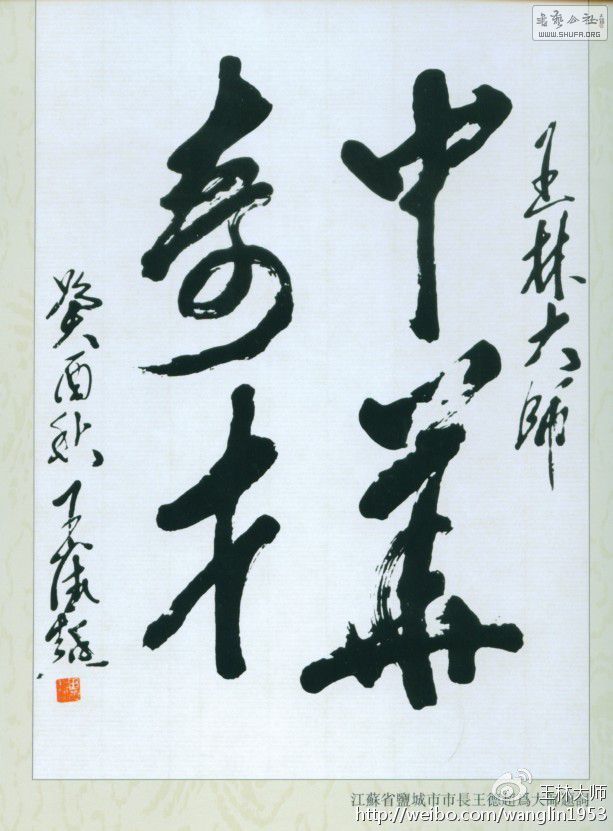 書藝公社
WWW.SHUFA.ORG
王林大师
中華
奇才
癸酉秋
江蘇省鹽城市市長王德超爲大師題詞
王林大师
http://weibo.com/wanglin1953